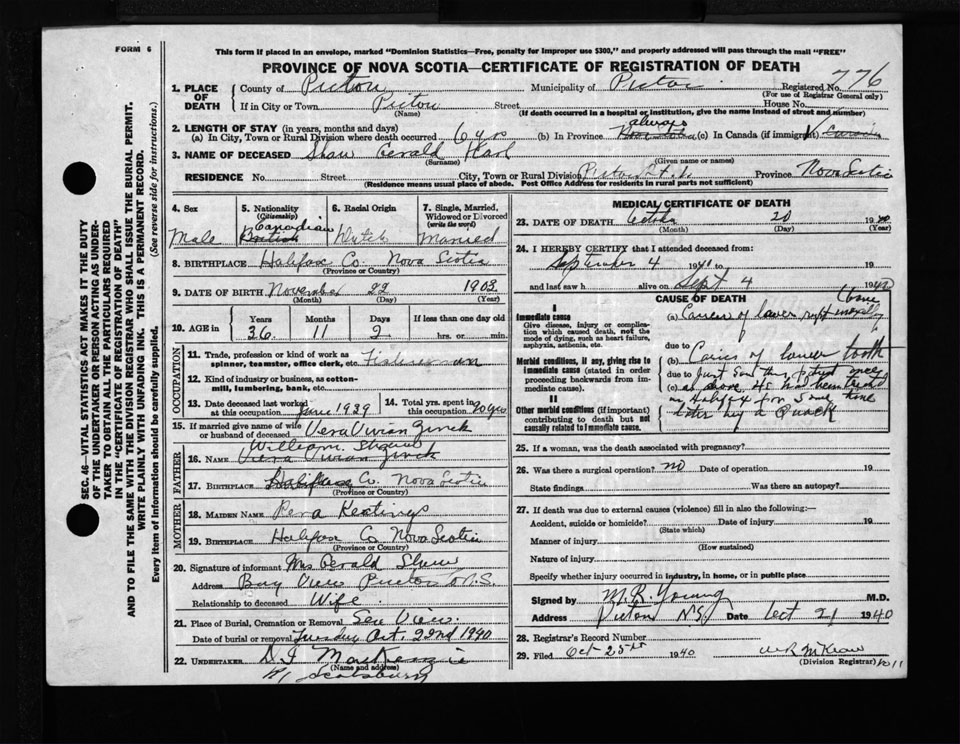 FORM 6
This form if placed in an envelope, marked "Dominion Statistics—Free, penalty for improper use $300," and properly addressed will pass through the mail "FREE"
PROVINCE OF NOVA SCOTIA—CERTIFICATE OF REGISTRATION OF DEATH
SEC. 46—VITAL STATISTICS ACT MAKES IT THE DUTY
OF THE UNDERTAKER OR PERSON ACTING AS UNDER-
TAKER TO OBTAIN ALL THE PARTICULARS REQUIRED
IN THE "CERTIFICATE OF REGISTRATION OF DEATH"
AND TO FILE THE SAME WITH THE DIVISION REGISTRAR WHO SHALL ISSUE THE BURIAL PERMIT.
WRITE PLAINLY WITH UNFADING INK. THIS IS A PERMANENT RECORD.
Every item of Information should be carefully supplied. (See reverse side for instructions.)
1. PLACE OF DEATH County of Pictou Municipality of Pictou Registered No. 776
(For use of Registrar General only)
If in City or Town Pictou Street House No.
(Name) (If death occurred in a hospital or institution, give the name instead of street and number)
2. LENGTH OF STAY (in years, months and days)
(a) In City, Town or Rural Division where death occurred 6 yrs (b) In Province always (c) In Canada (if immigrant)
3. NAME OF DECEASED Shaw Gerald Karl
(Surname) (Given name or names)
RESIDENCE No. Street City, Town or Rural Division Pictou Province Nova Scotia
(Residence means usual place of abode. Post Office Address for residents in rural parts not sufficient)
4. Sex Male
5. Nationality (Citizenship) Canadian British
6. Racial Origin Dutch
7. Single, Married, Widowed or Divorced (write the word) Married
8. BIRTHPLACE Halifax Co. Nova Scotia
(Province or Country)
9. DATE OF BIRTH November 22 1903
(Month) (Day) (Year)
10. AGE in Years 36 Months 11 Days 2 If less than one day old hrs. or min.
OCCUPATION
11. Trade, profession or kind of work as spinner, teamster, office clerk, etc. Fisherman
12. Kind of industry or business, as cotton-mill, lumbering, bank, etc.
13. Date deceased last worked at this occupation June 1939 14. Total yrs. spent in this occupation 20 yrs
15. If married give name of wife or husband of deceased Vera Vivian Zinck
FATHER
16. Name William Shaw
Vera Vivian Zinck
17. Birthplace Halifax Co. Nova Scotia
(Province or Country)
MOTHER
18. Maiden Name Keatings
19. Birthplace Halifax Co Nova Scotia
(Province or Country)
20. Signature of informant Mrs Gerald Shaw
Address Bay View Pictou Co N.S.
Relationship to deceased Wife
21. Place of Burial, Cremation or Removal Sea View.
Date of burial or removal Tuesday Oct. 22nd 1940
22. UNDERTAKER D J MacKenzie
(Name and address)
Scotsburn
MEDICAL CERTIFICATE OF DEATH
23. DATE OF DEATH October 20 1940
(Month) (Day) (Year)
24. I HEREBY CERTIFY that I attended deceased from:
September 4 1940 to 19
and last saw h alive on Sept 4 1940
CAUSE OF DEATH
I
Immediate cause
Give disease, injury or complication which caused death, not the mode of dying, such as heart failure, asphyxia, asthenia, etc.
Morbid conditions, if any, giving rise to immediate cause (stated in order proceeding backwards from immediate cause).
II
Other morbid conditions (if important) contributing to death but not causally related to immediate cause.
(a) Cancer of lower right maxilla (bone
due to
(b) Caries of lower tooth
due to Just saw this patient once
(c) as above as had been treated
in Halifax for some time
later by a Quack
25. If a woman, was the death associated with pregnancy?
26. Was there a surgical operation? no Date of operation 19
State findings Was there an autopsy?
27. If death was due to external causes (violence) fill in also the following:—
Accident, suicide or homicide? Date of injury 19
(State which)
Manner of injury
(How sustained)
Nature of injury
Specify whether injury occurred in industry, in home, or in public place
Signed by M. R. Young M.D.
Address Pictou N.S. Date Oct 21 1940
28. Registrar's Record Number
29. Filed Oct 25th 1940
(Division Registrar)